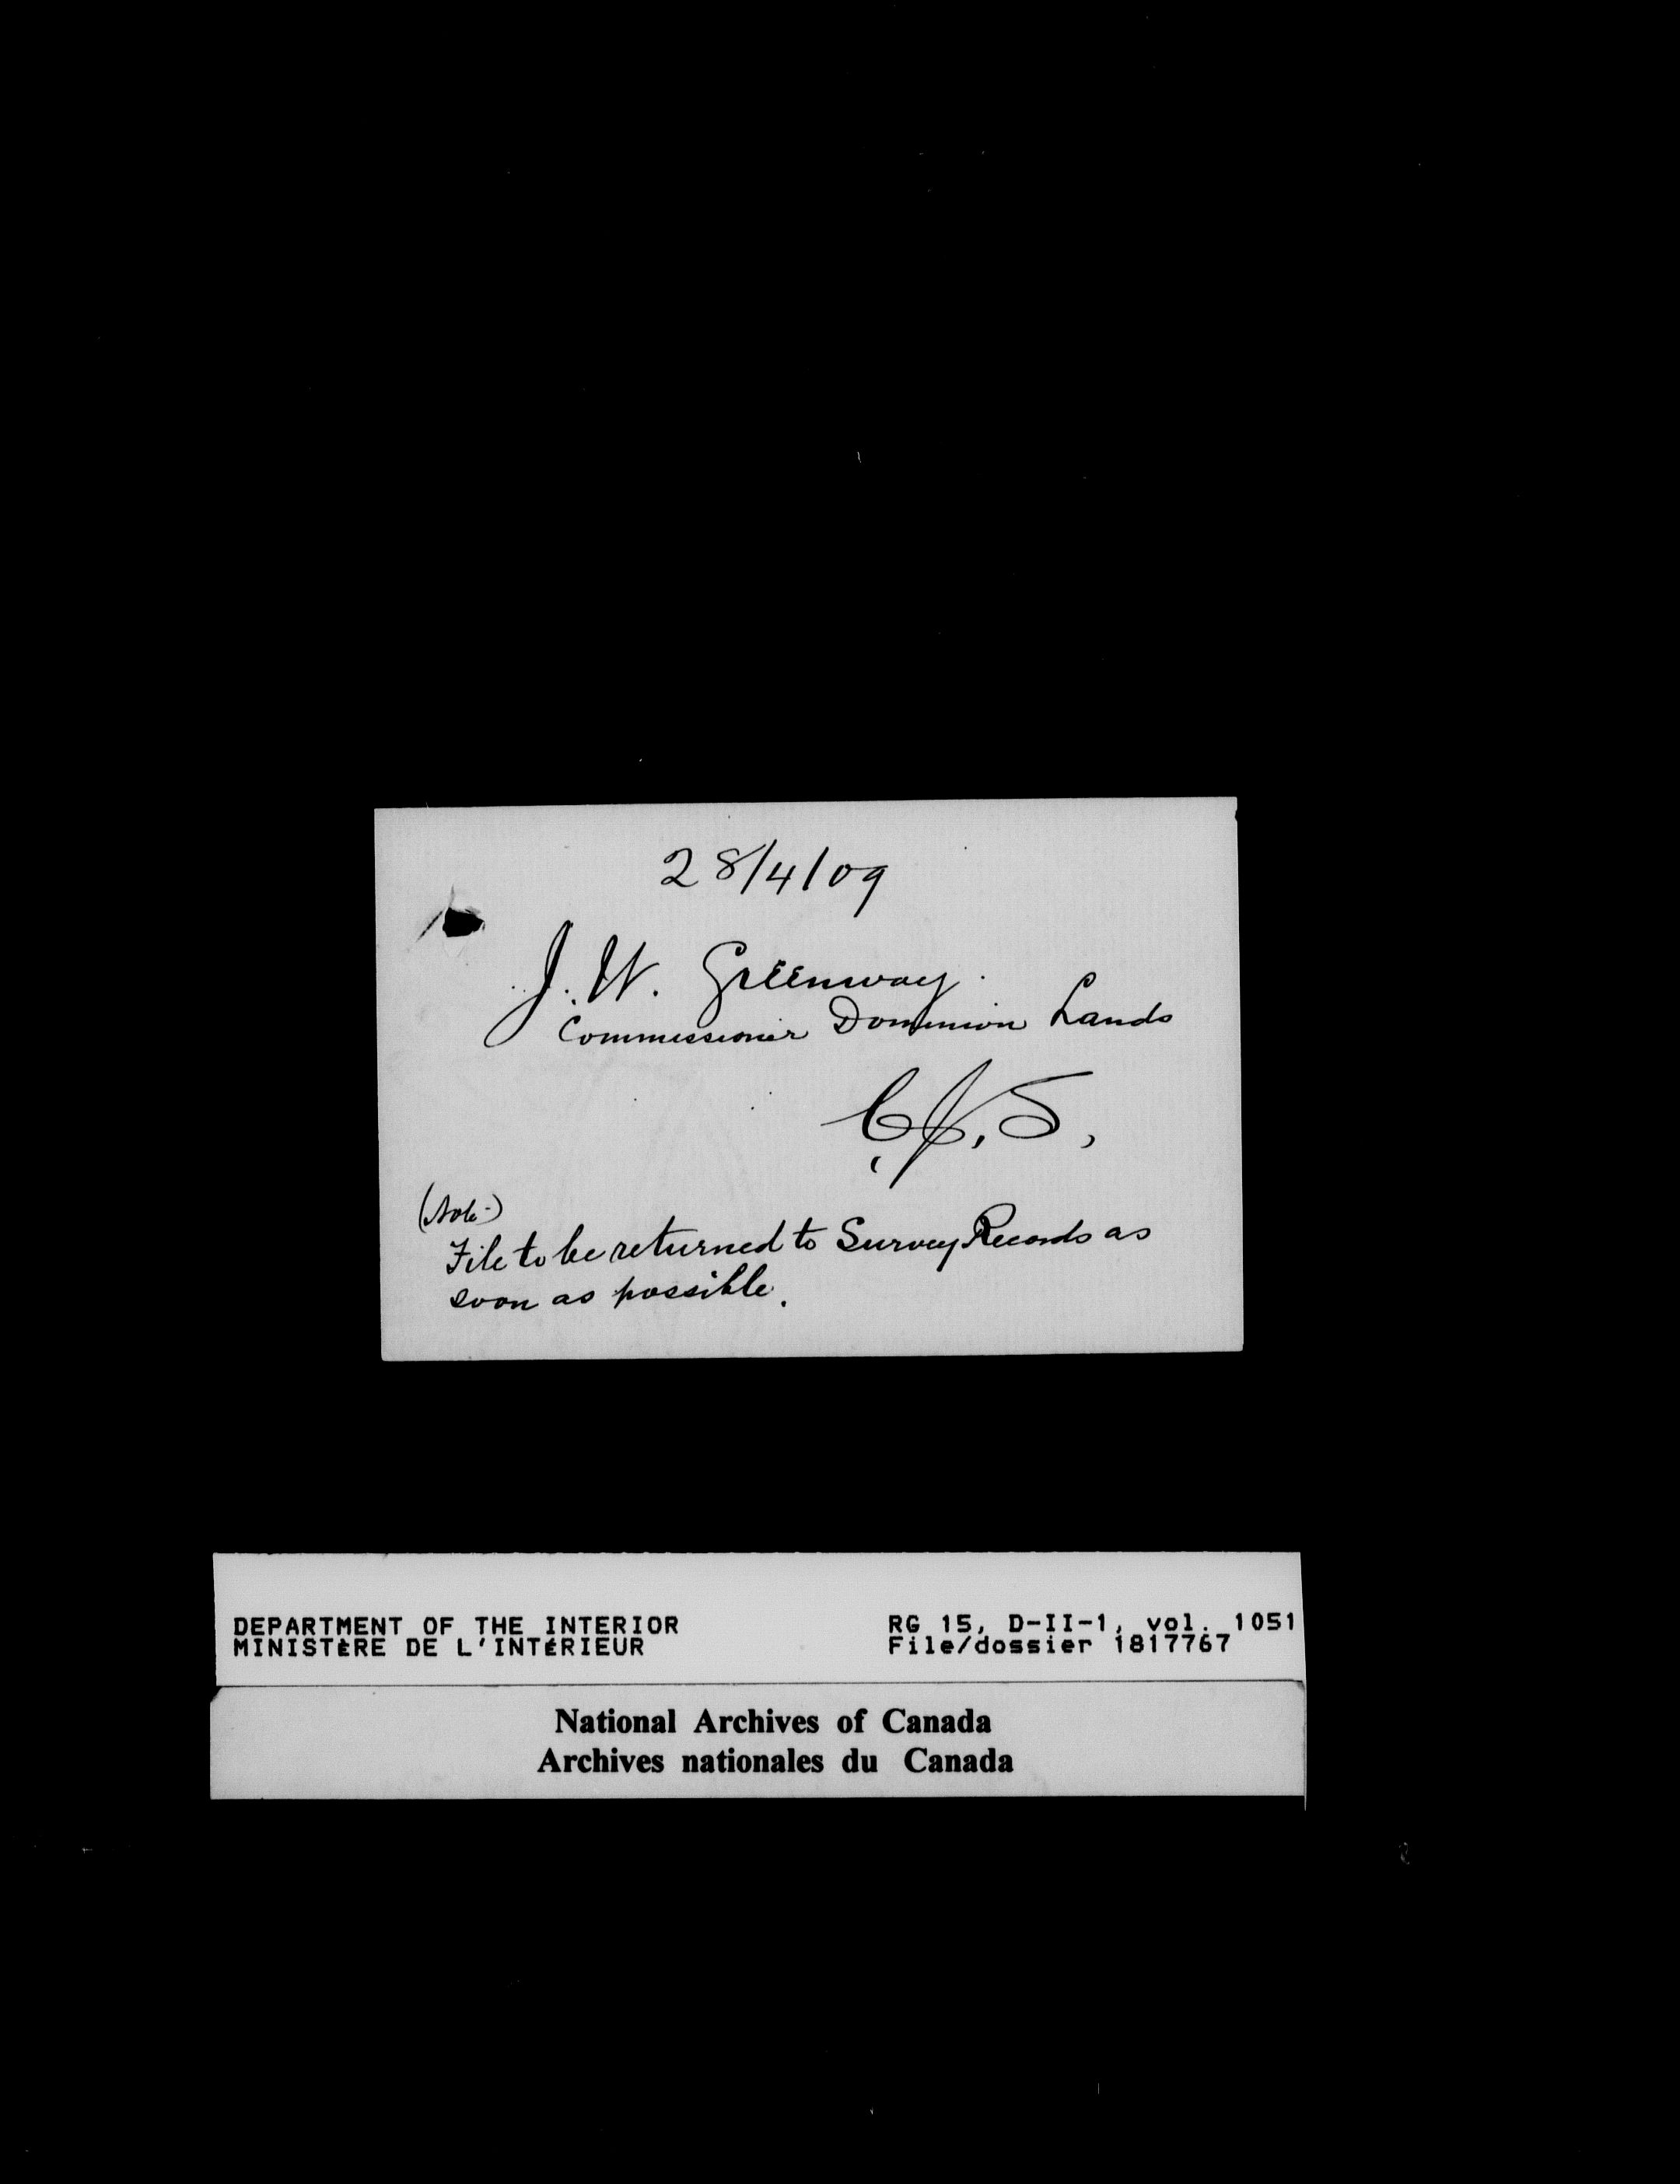 28/4/09
J. W. Greenway.
Commissioner Dominion Lands
(Note-)
File to be returned to Survey Records as
soon as possible.
DEPARTMENT OF THE INTERIOR
MINISTÈRE DE L'INTÉRIEUR
RG 15, D-II-1, vol. 1051
File/dossier 1817767
National Archives of Canada
Archives nationales du Canada